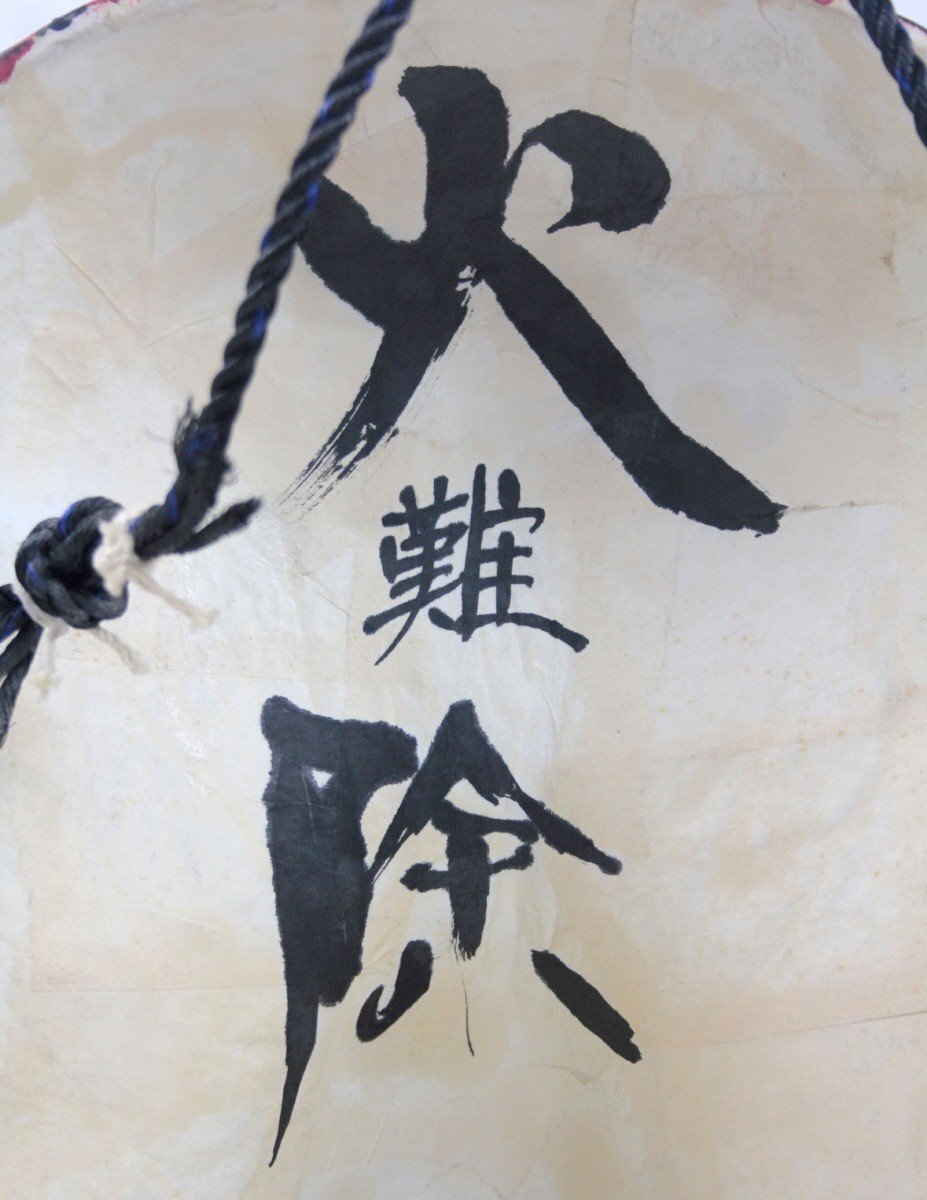 火難除